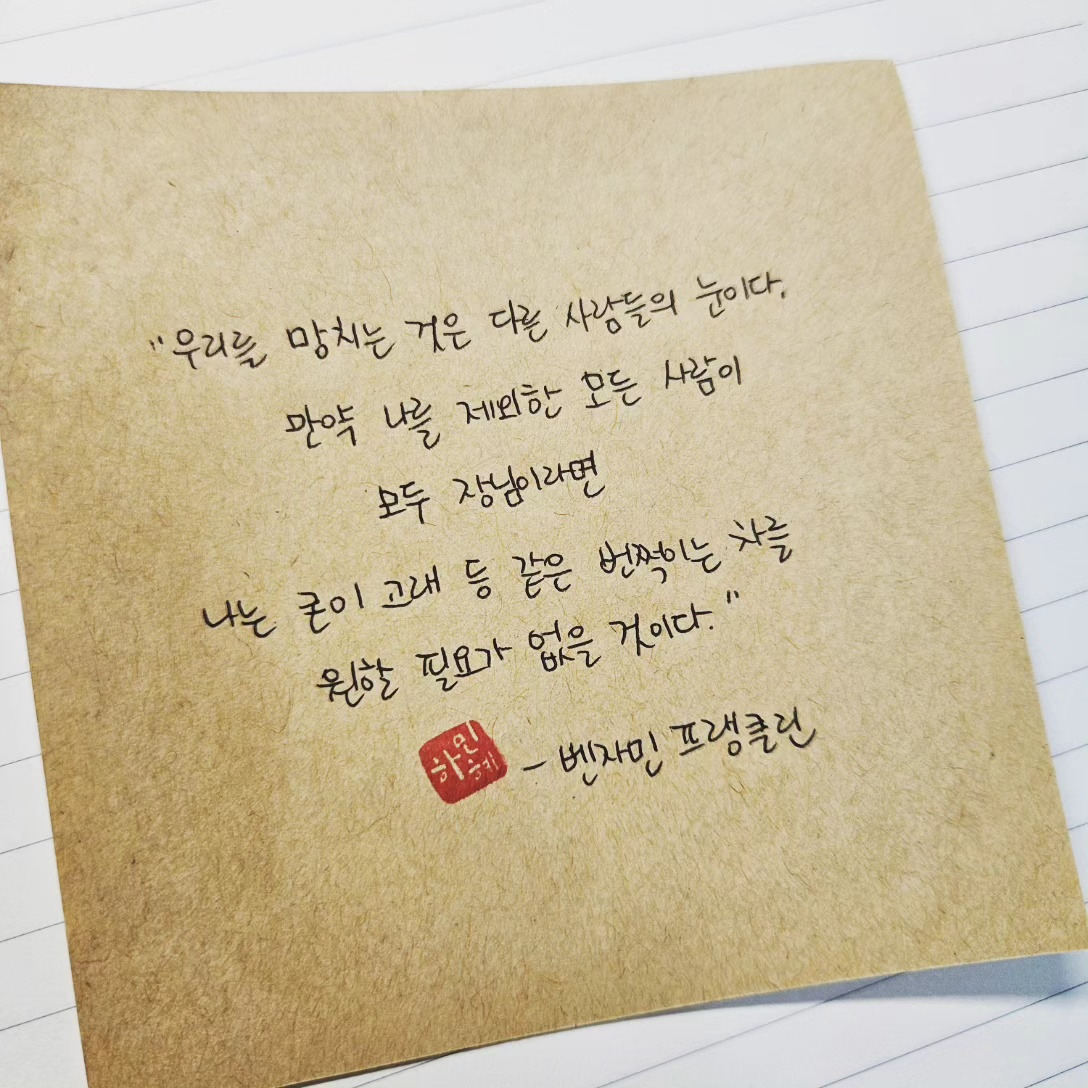 "우리를 망치는 것은 다른 사람들의 눈이다.
만약 나를 제외한 모든 사람이
모두 장님이라면
나는 굳이 고래 등 같은 번쩍이는 차를
원할 필요가 없을 것이다."
- 벤자민 프랭클린
하민혜